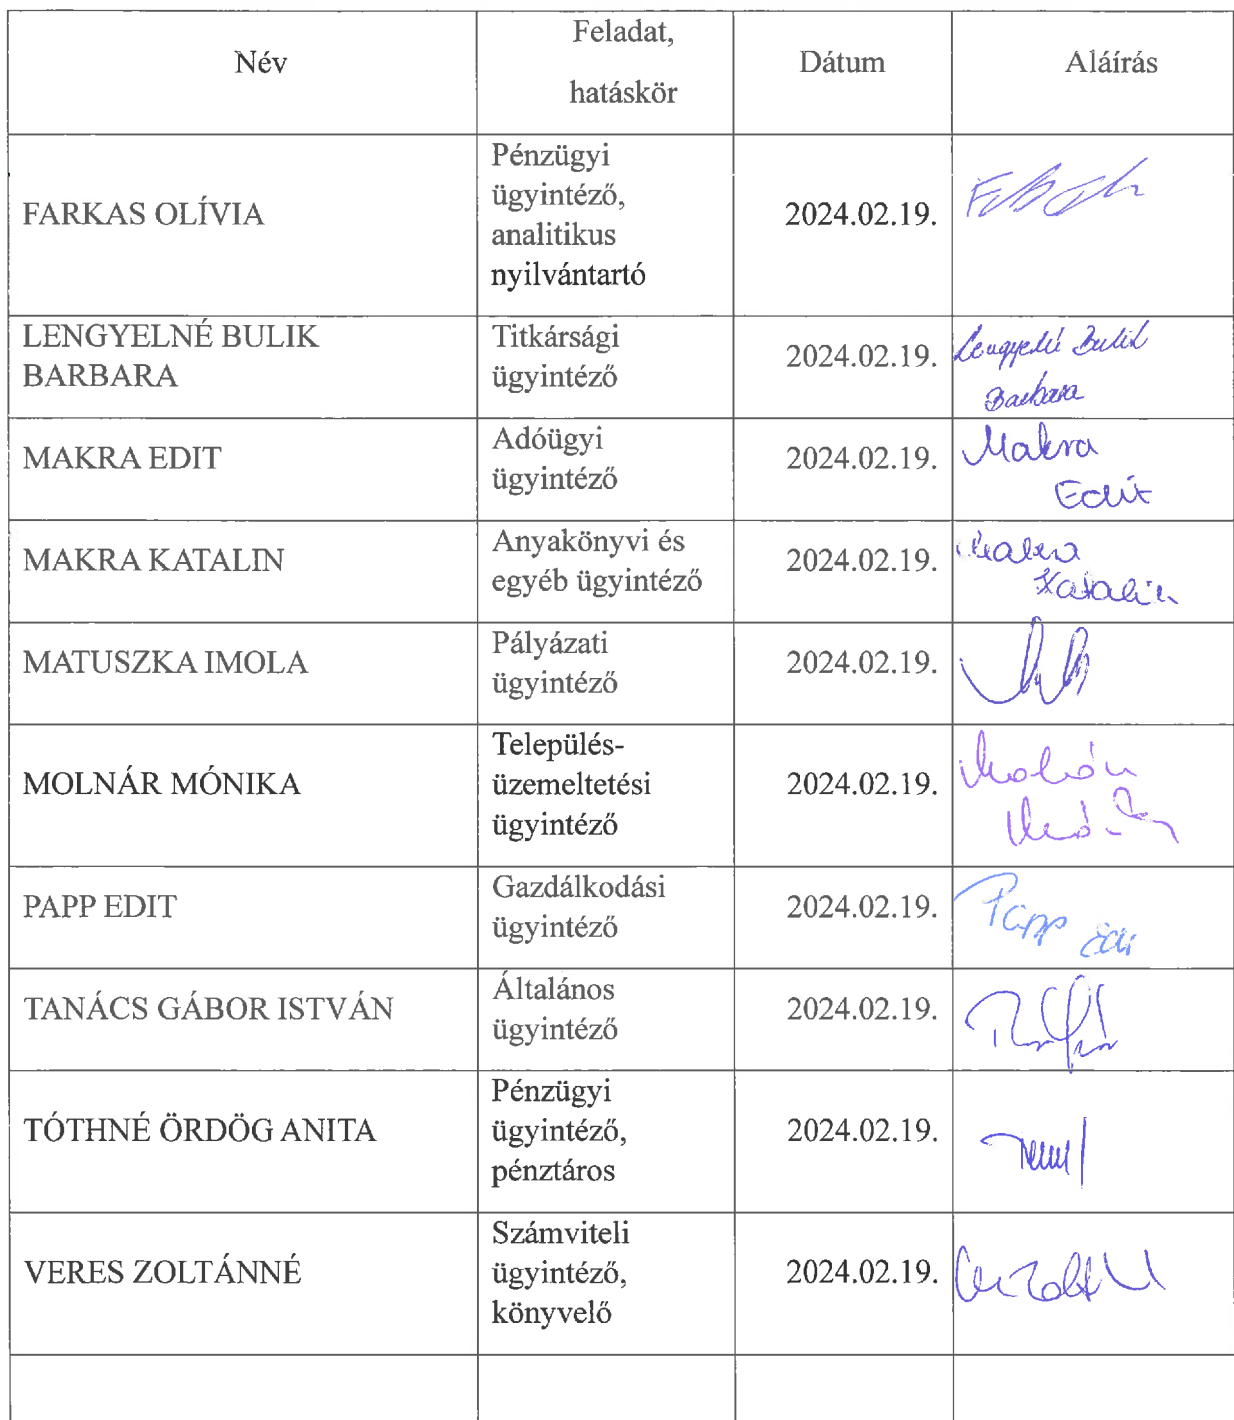 Név
Feladat,
hatáskör
Dátum
Aláírás
FARKAS OLÍVIA
Pénzügyi
ügyintéző,
analitikus
nyilvántartó
2024.02.19.
LENGYELNÉ BULIK
BARBARA
Titkársági
ügyintéző
2024.02.19.
Lengyelné Bulik
Barbara
MAKRA EDIT
Adóügyi
ügyintéző
2024.02.19.
Makra
Edit
MAKRA KATALIN
Anyakönyvi és
egyéb ügyintéző
2024.02.19.
Makra
Katalin
MATUSZKA IMOLA
Pályázati
ügyintéző
2024.02.19.
MOLNÁR MÓNIKA
Település-
üzemeltetési
ügyintéző
2024.02.19.
Molnár
PAPP EDIT
Gazdálkodási
ügyintéző
2024.02.19.
Papp Edit
TANÁCS GÁBOR ISTVÁN
Általános
ügyintéző
2024.02.19.
TÓTHNÉ ÖRDÖG ANITA
Pénzügyi
ügyintéző,
pénztáros
2024.02.19.
VERES ZOLTÁNNÉ
Számviteli
ügyintéző,
könyvelő
2024.02.19.